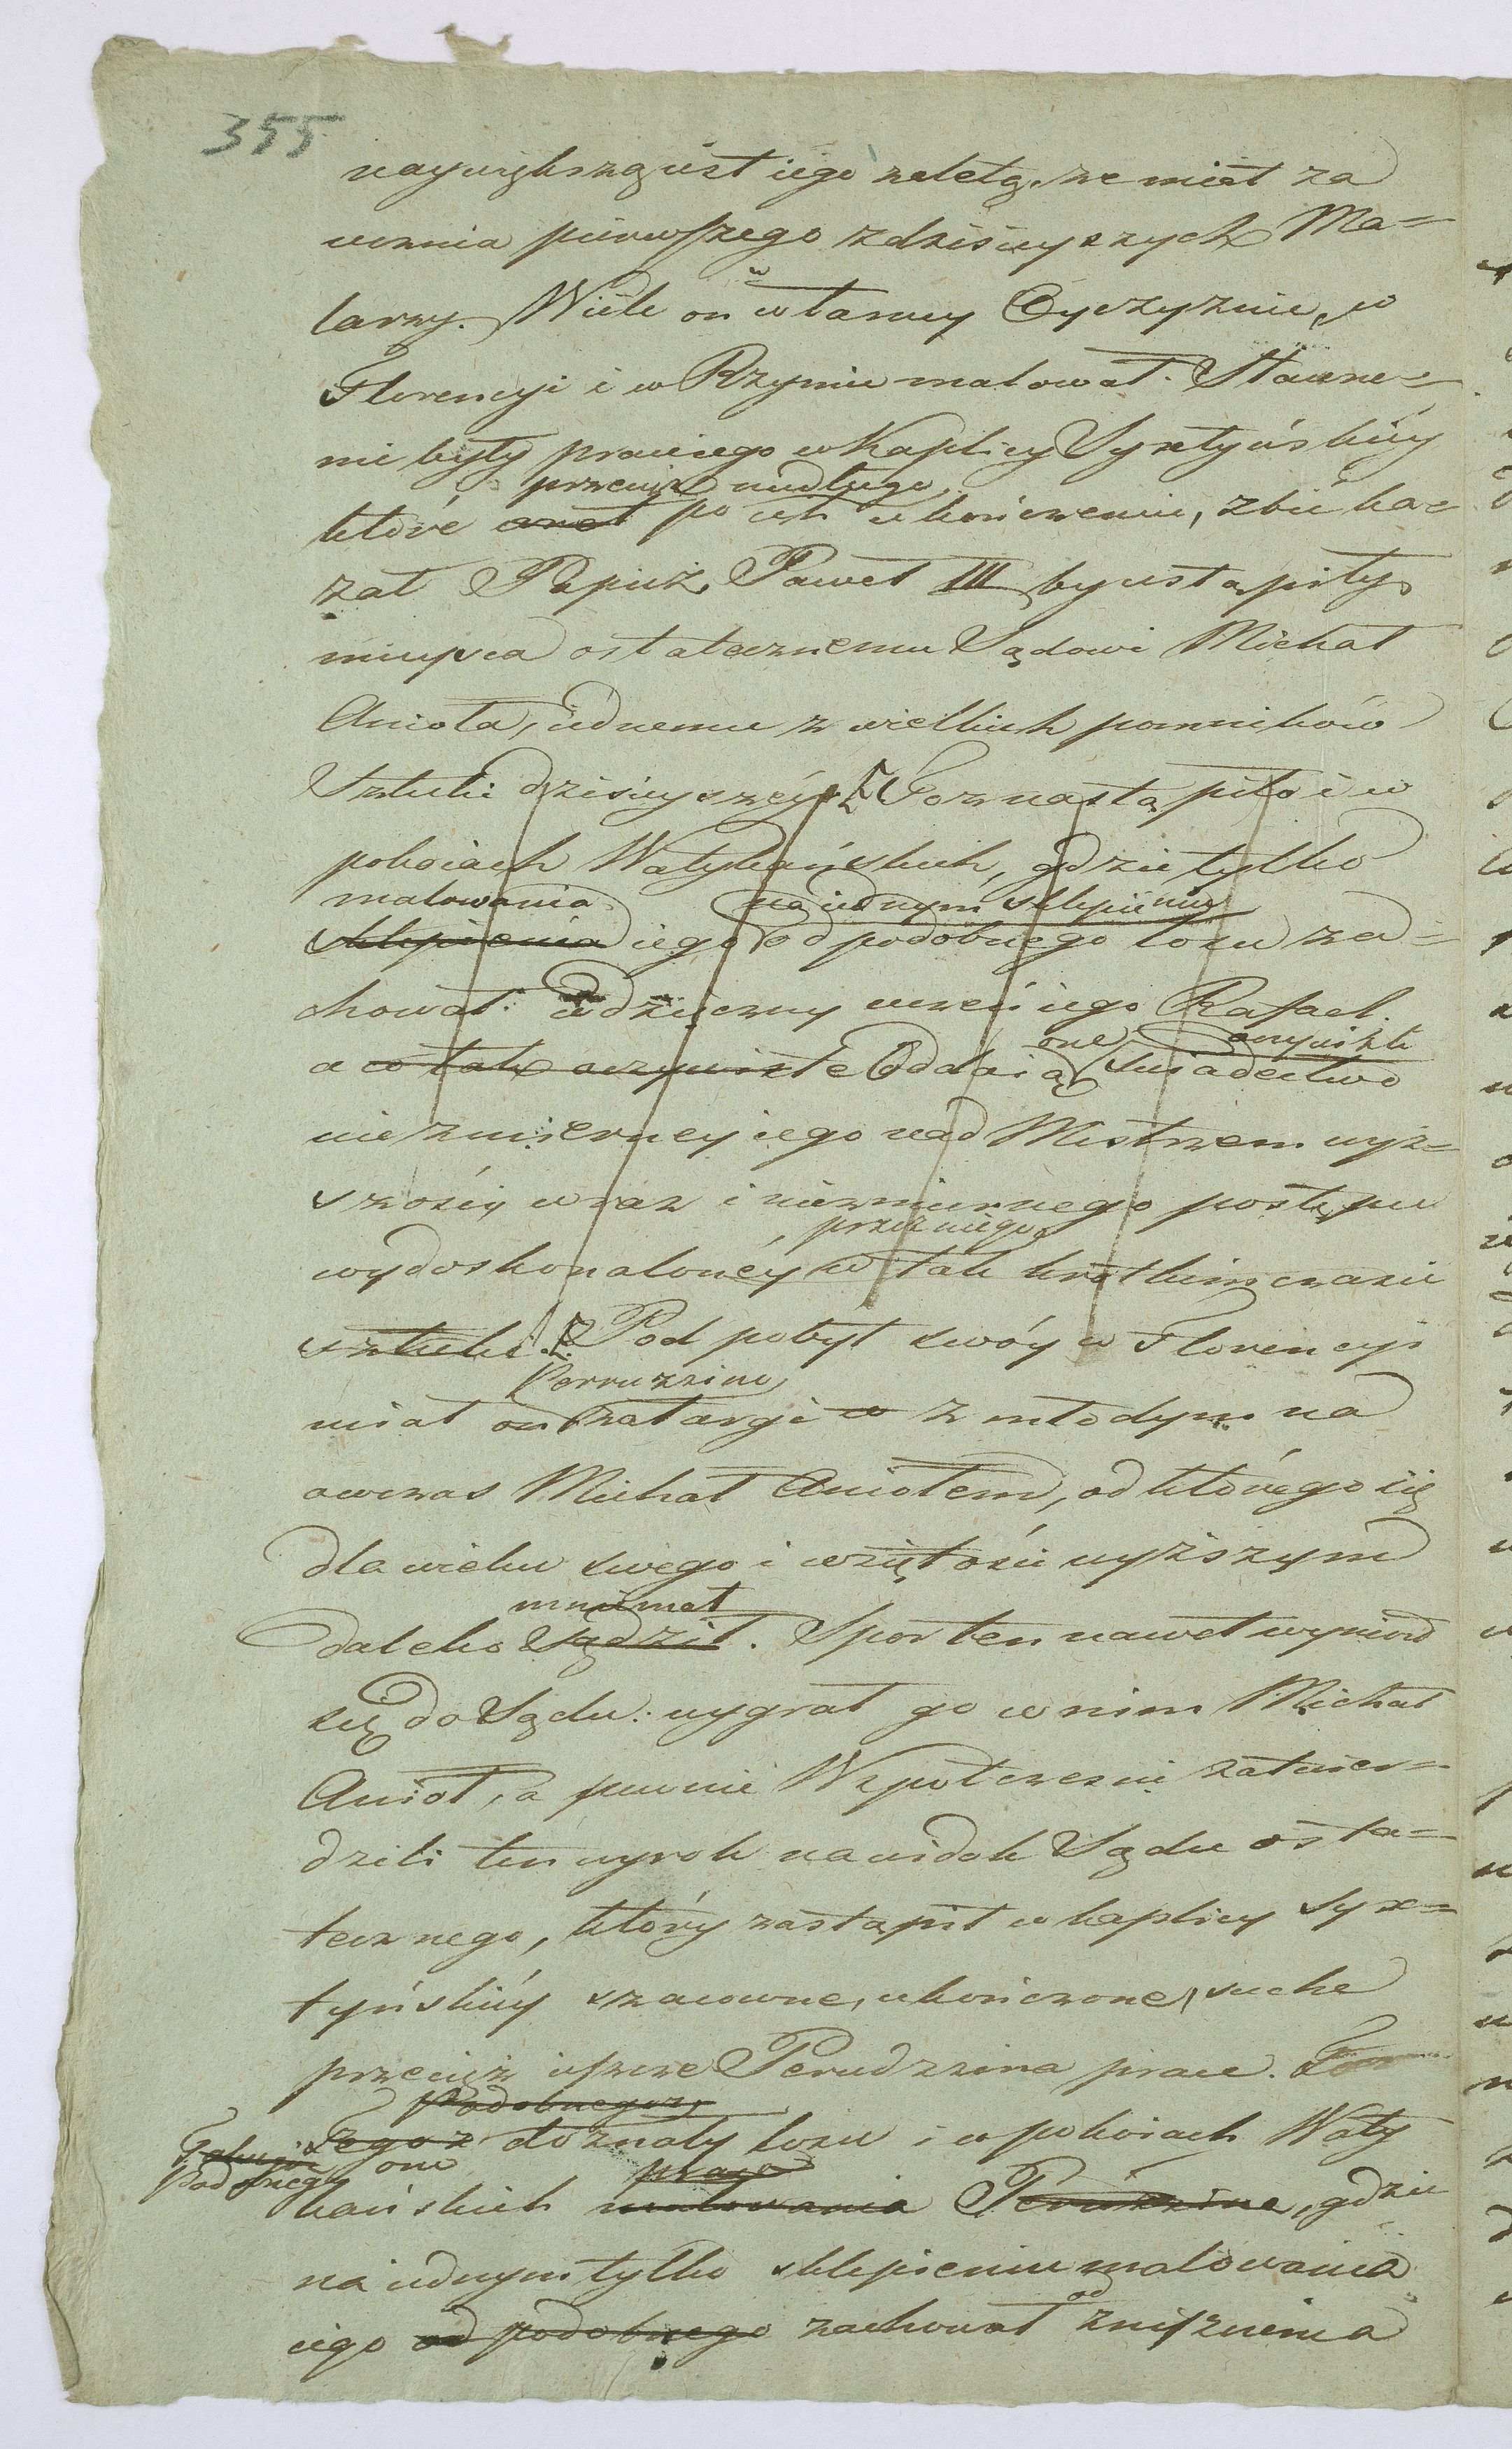 355
naywiększą iest iego zaletą, że miał za
ucznia pierwszego zdzisieyszych Ma=
larzy. Wiele on w własney Oyczyznie, w
Florencyi i w Rzymie malował. Sławne=
mi były prace iego w Kaplicy Syxtyńskiéy
przecież niedługo
które po ich ukończeniu, zbić ka=
zał Papież Paweł III by ustąpiły
mieysca ostatecznemu Sądowi Michał
Anioła, iednemu z wielkich pomników
Sztuki dzisieyszéy. Toż nastąpiło i w
pokoiach Watykańskich, gdzie tylko
malowania na iednym sklepieniu
sklepienia iego od podobnego losu za=
chował wdzięczny uczeń iego Rafael.
one oczywiste
a w tak oczywiste Oddaią świadectwo
niezmierney iego nad Mistrzem wyż=
szości, wraz i niezmiernego postępu
przez niego
wydoskonalonéy w tak krótkim czasie
sztuki. Pod pobyt swóy w Florencyi
Perruzzino
miał on zatargi w z młodym na
owczas Michał Aniołem, od którego się
dla wieku swego i wziętości wyższym
mniemał
daleko Sądził. Spor ten nawet wyniosł
się do Sądu: wygrał go w nim Michał
Anioł, a pewnie Wspołcześni zatwier=
dzili ten wyrok na widok Sądu osta=
tecznego, który zastąpił w kaplicy Syx=
tyńskiéy szacowne, ukończone, suche
przecież ieszcze Perudzzina prace.
Podobnegoż
Tegoż doznały losu i w pokoiach Waty
Podobnego one prace
kańskich malowania Peruzzina, gdzie
na iednym tylko sklepieniu malowania
od
iego od podobnego zachował zniszczenia